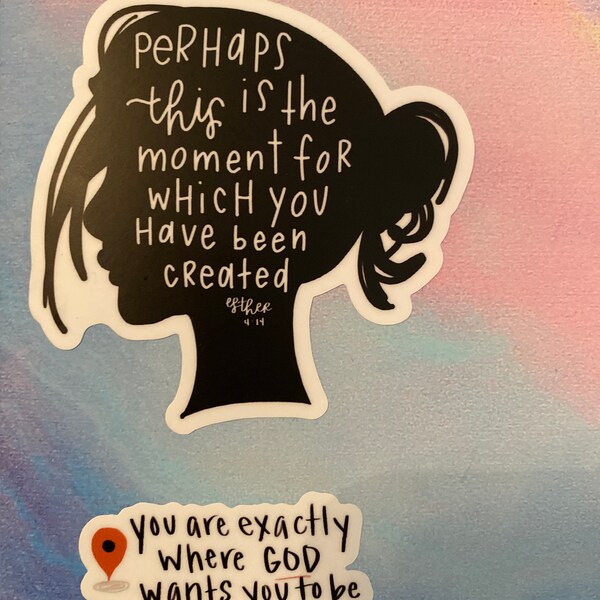 perHaps
this is the
moment for
wHicH you
Have been
created
esther
4 14
you are exactly
where GOD
wants you to be